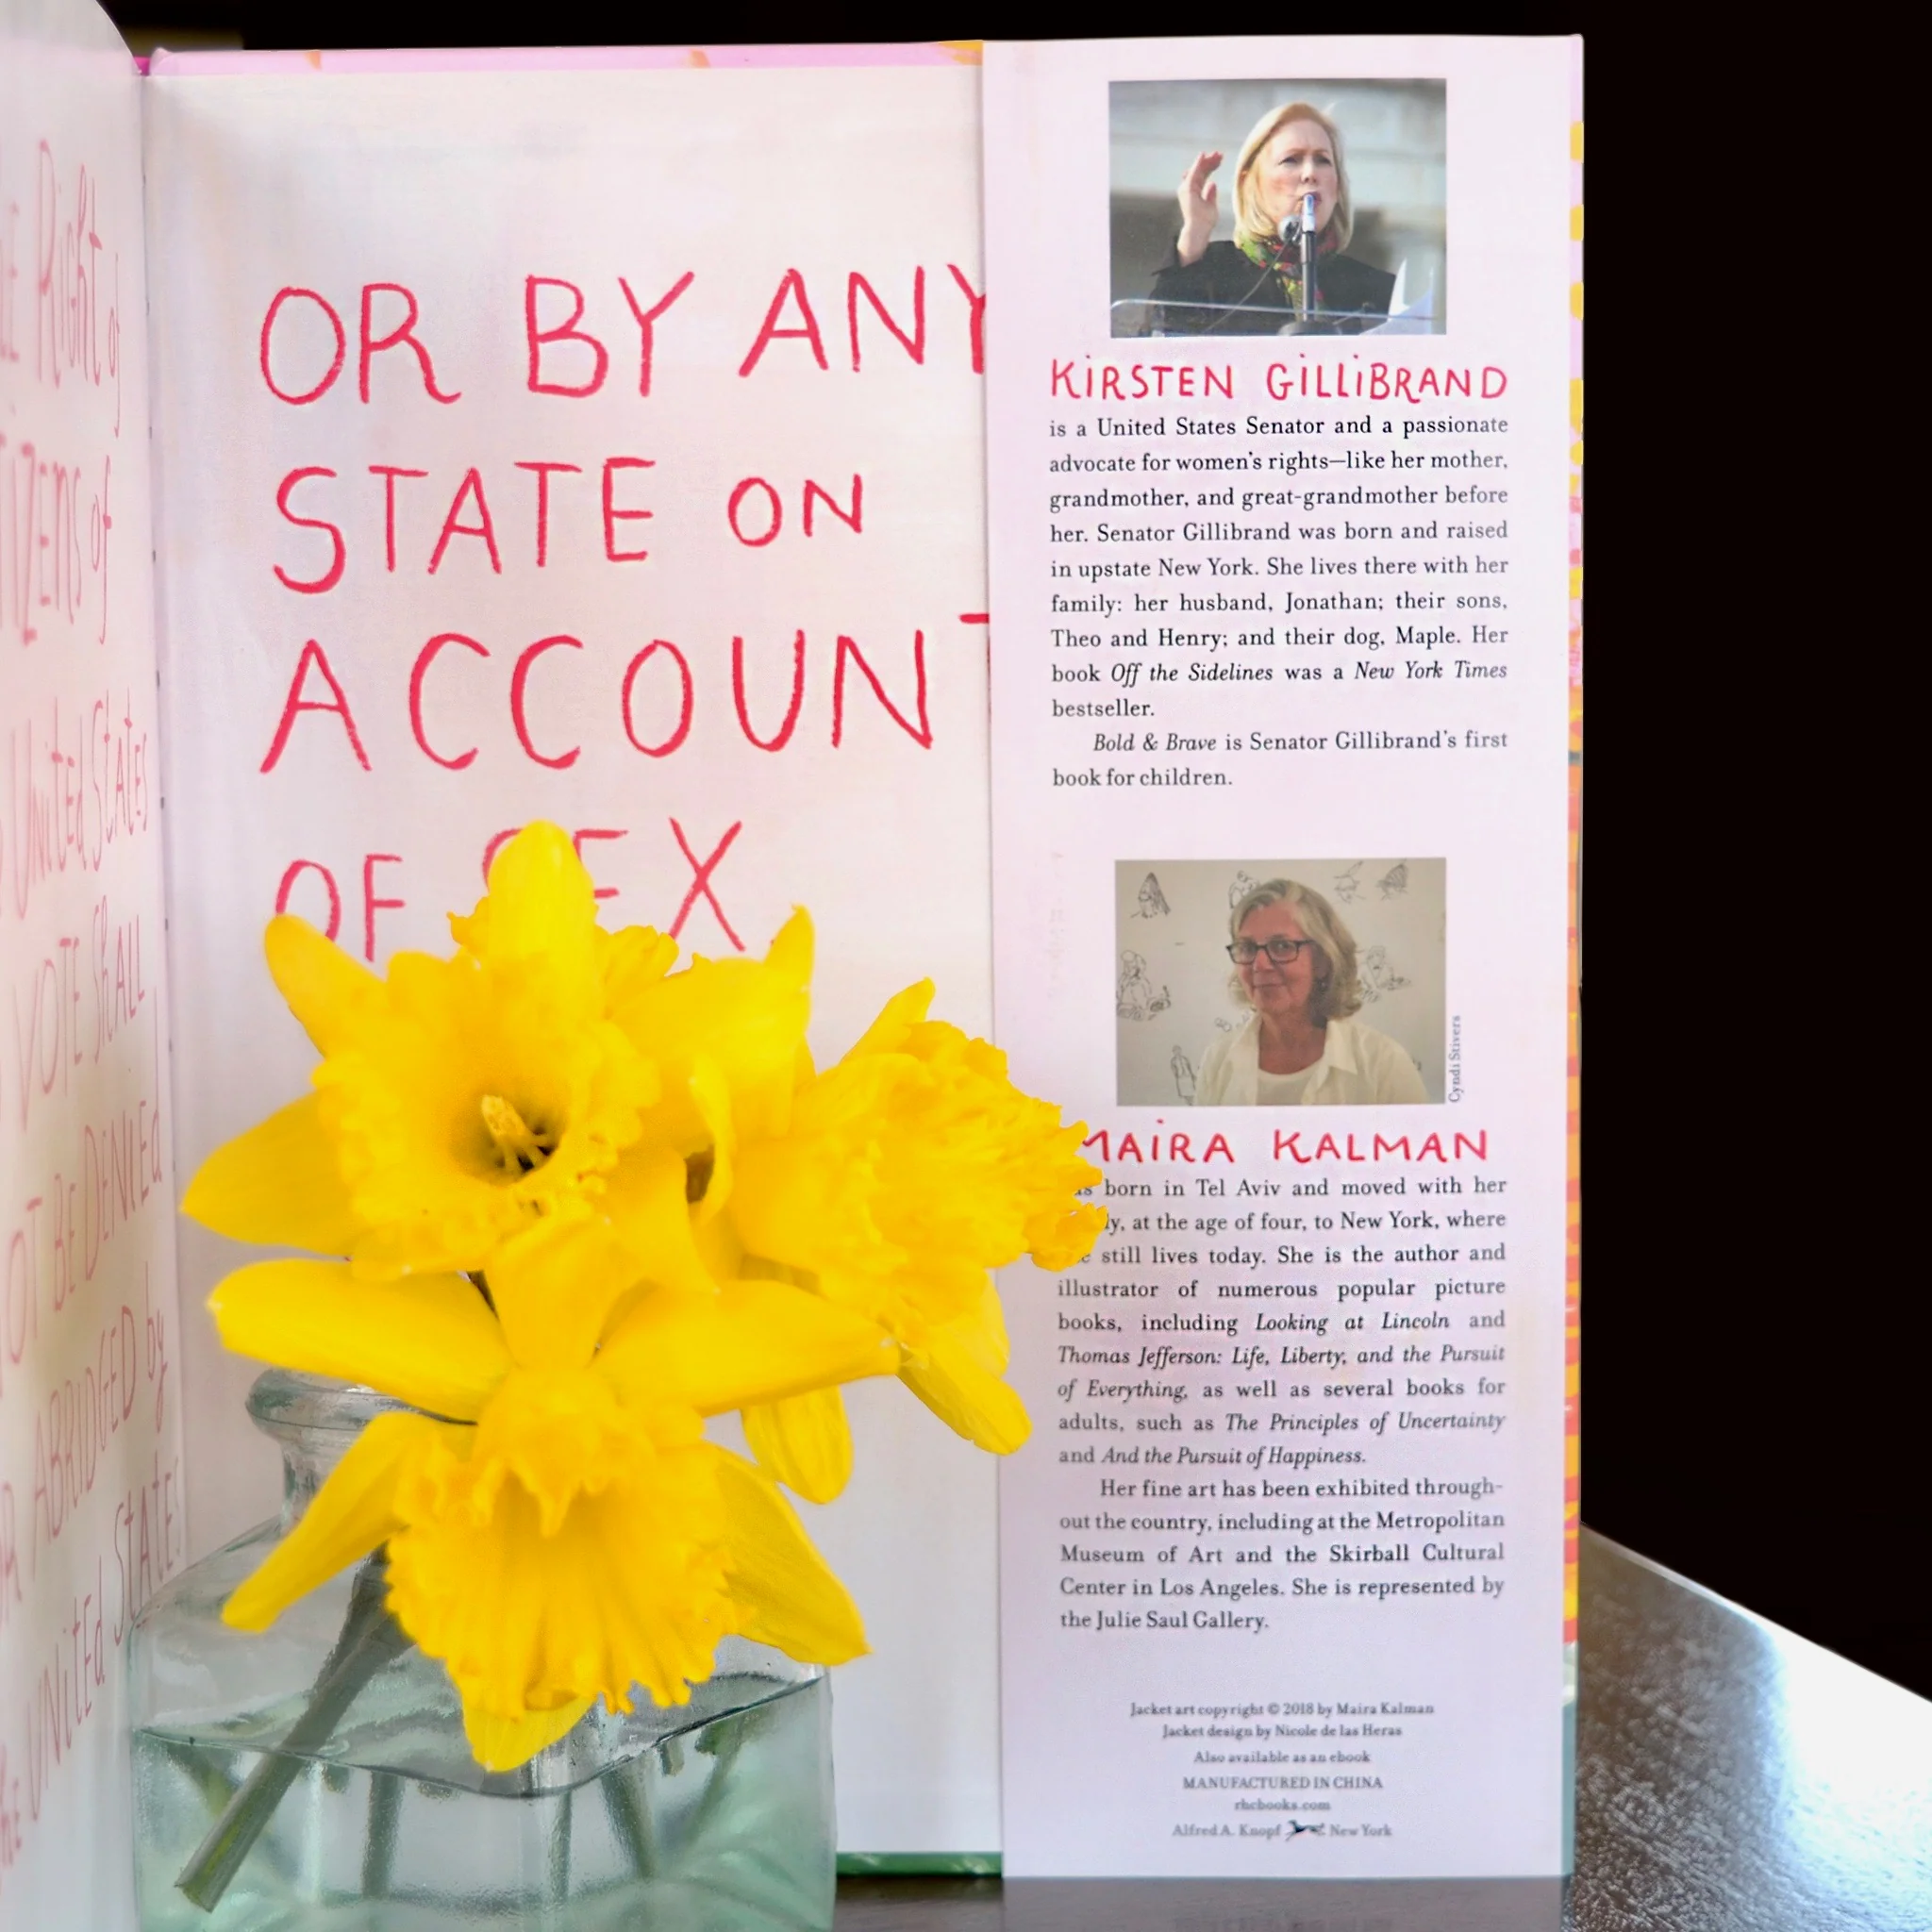 Right of
TiZENS of
United States
VOTE ShALL
OT BE DENIED
R ABRIDGED by
THE UNitED StAtES
OR BY ANY
STATE ON
ACCOUNT
OF SEX.
KiRSTEN GiLLiBRAND
is a United States Senator and a passionate
advocate for women's rights—like her mother,
grandmother, and great-grandmother before
her. Senator Gillibrand was born and raised
in upstate New York. She lives there with her
family: her husband, Jonathan; their sons,
Theo and Henry; and their dog, Maple. Her
book Off the Sidelines was a New York Times
bestseller.
Bold & Brave is Senator Gillibrand's first
book for children.
Cyndi Stivers
MAiRA KALMAN
born in Tel Aviv and moved with her
ly, at the age of four, to New York, where
still lives today. She is the author and
illustrator of numerous popular picture
books, including Looking at Lincoln and
Thomas Jefferson: Life, Liberty, and the Pursuit
of Everything, as well as several books for
adults, such as The Principles of Uncertainty
and And the Pursuit of Happiness.
Her fine art has been exhibited through-
out the country, including at the Metropolitan
Museum of Art and the Skirball Cultural
Center in Los Angeles. She is represented by
the Julie Saul Gallery.
Jacket art copyright © 2018 by Maira Kalman
Jacket design by Nicole de las Heras
Also available as an ebook
MANUFACTURED IN CHINA
rhcbooks.com
Alfred A. Knopf New York